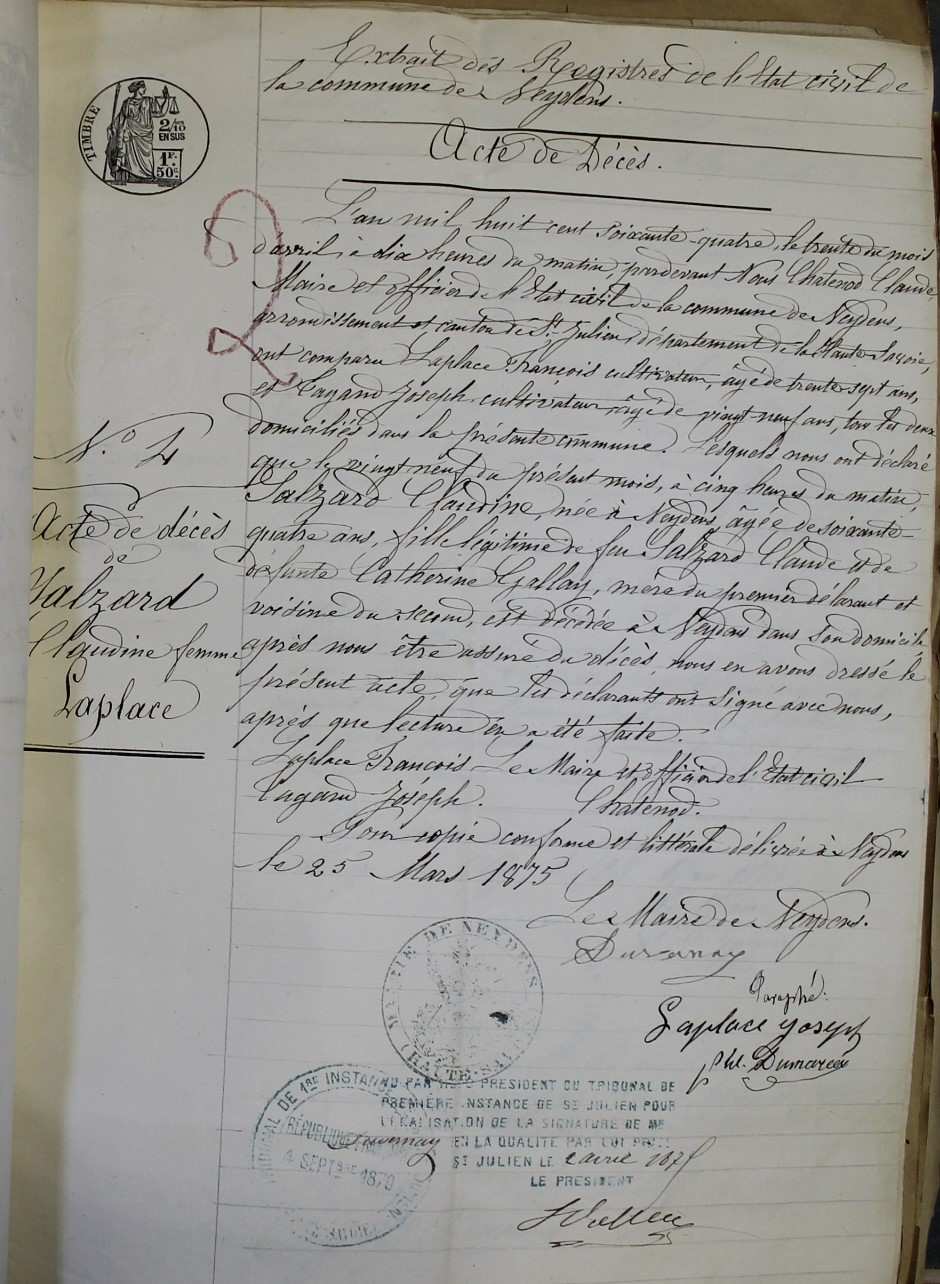 TIMBRE
2/10
EN SUS
1F.
50c.
Extrait des Registres de l'Etat civil de
la commune de Neydens.
Acte de Décès.
L'an mil huit cent soixante-quatre, le trente du mois
d'avril, à dix heures du matin, pardevant Nous Chatenod Claude,
Maire et officier de l'Etat civil de la commune de Neydens,
arrondissement et canton de St Julien, département de la Haute Savoie,
ont comparu Laplace François cultivateur, âgé de trente sept ans,
et Tagand Joseph cultivateur âgé de vingt neuf ans, tous les deux
domiciliés dans la présente commune. Lesquels nous ont déclaré
que le vingt neuf du présent mois, à cinq heures du matin,
Jalzard Claudine, née à Neydens, âgée de soixante-
quatre ans, fille légitime de feu Jalzard Claude et de
défunte Catherine Gallay, mère du premier déclarant et
voisine du second, est décédée à Neydens dans son domicile
après nous être assuré du décès, nous en avons dressé le
présent acte, que les déclarants ont signé avec nous,
après que lecture en a été faite.
Laplace François Le Maire et officier de l'Etat civil
Tagand Joseph. Chatenod.
Pour copie conforme et littérale délivrée à Neydens
le 25 Mars 1875
Le Maire de Neydens.
Paraphé.
Laplace Joseph
phil. Dumarcey
No 4
Acte de décès
de
Jalzard
Claudine femme
Laplace
MAIRIE DE NEYDENS
(HAUTE-SAVOIE)
TRIBUNAL DE 1RE INSTANCE
RÉPUBLIQUE FRANÇAISE
4 SEPTBRE 1870
VU PAR NOUS PRESIDENT DU TRIBUNAL DE
PREMIÈRE INSTANCE DE ST JULIEN POUR
LÉGALISATION DE LA SIGNATURE DE ME
EN LA QUALITÉ PAR LUI PRISE
ST JULIEN LE 2 avril 1875
LE PRESIDENT